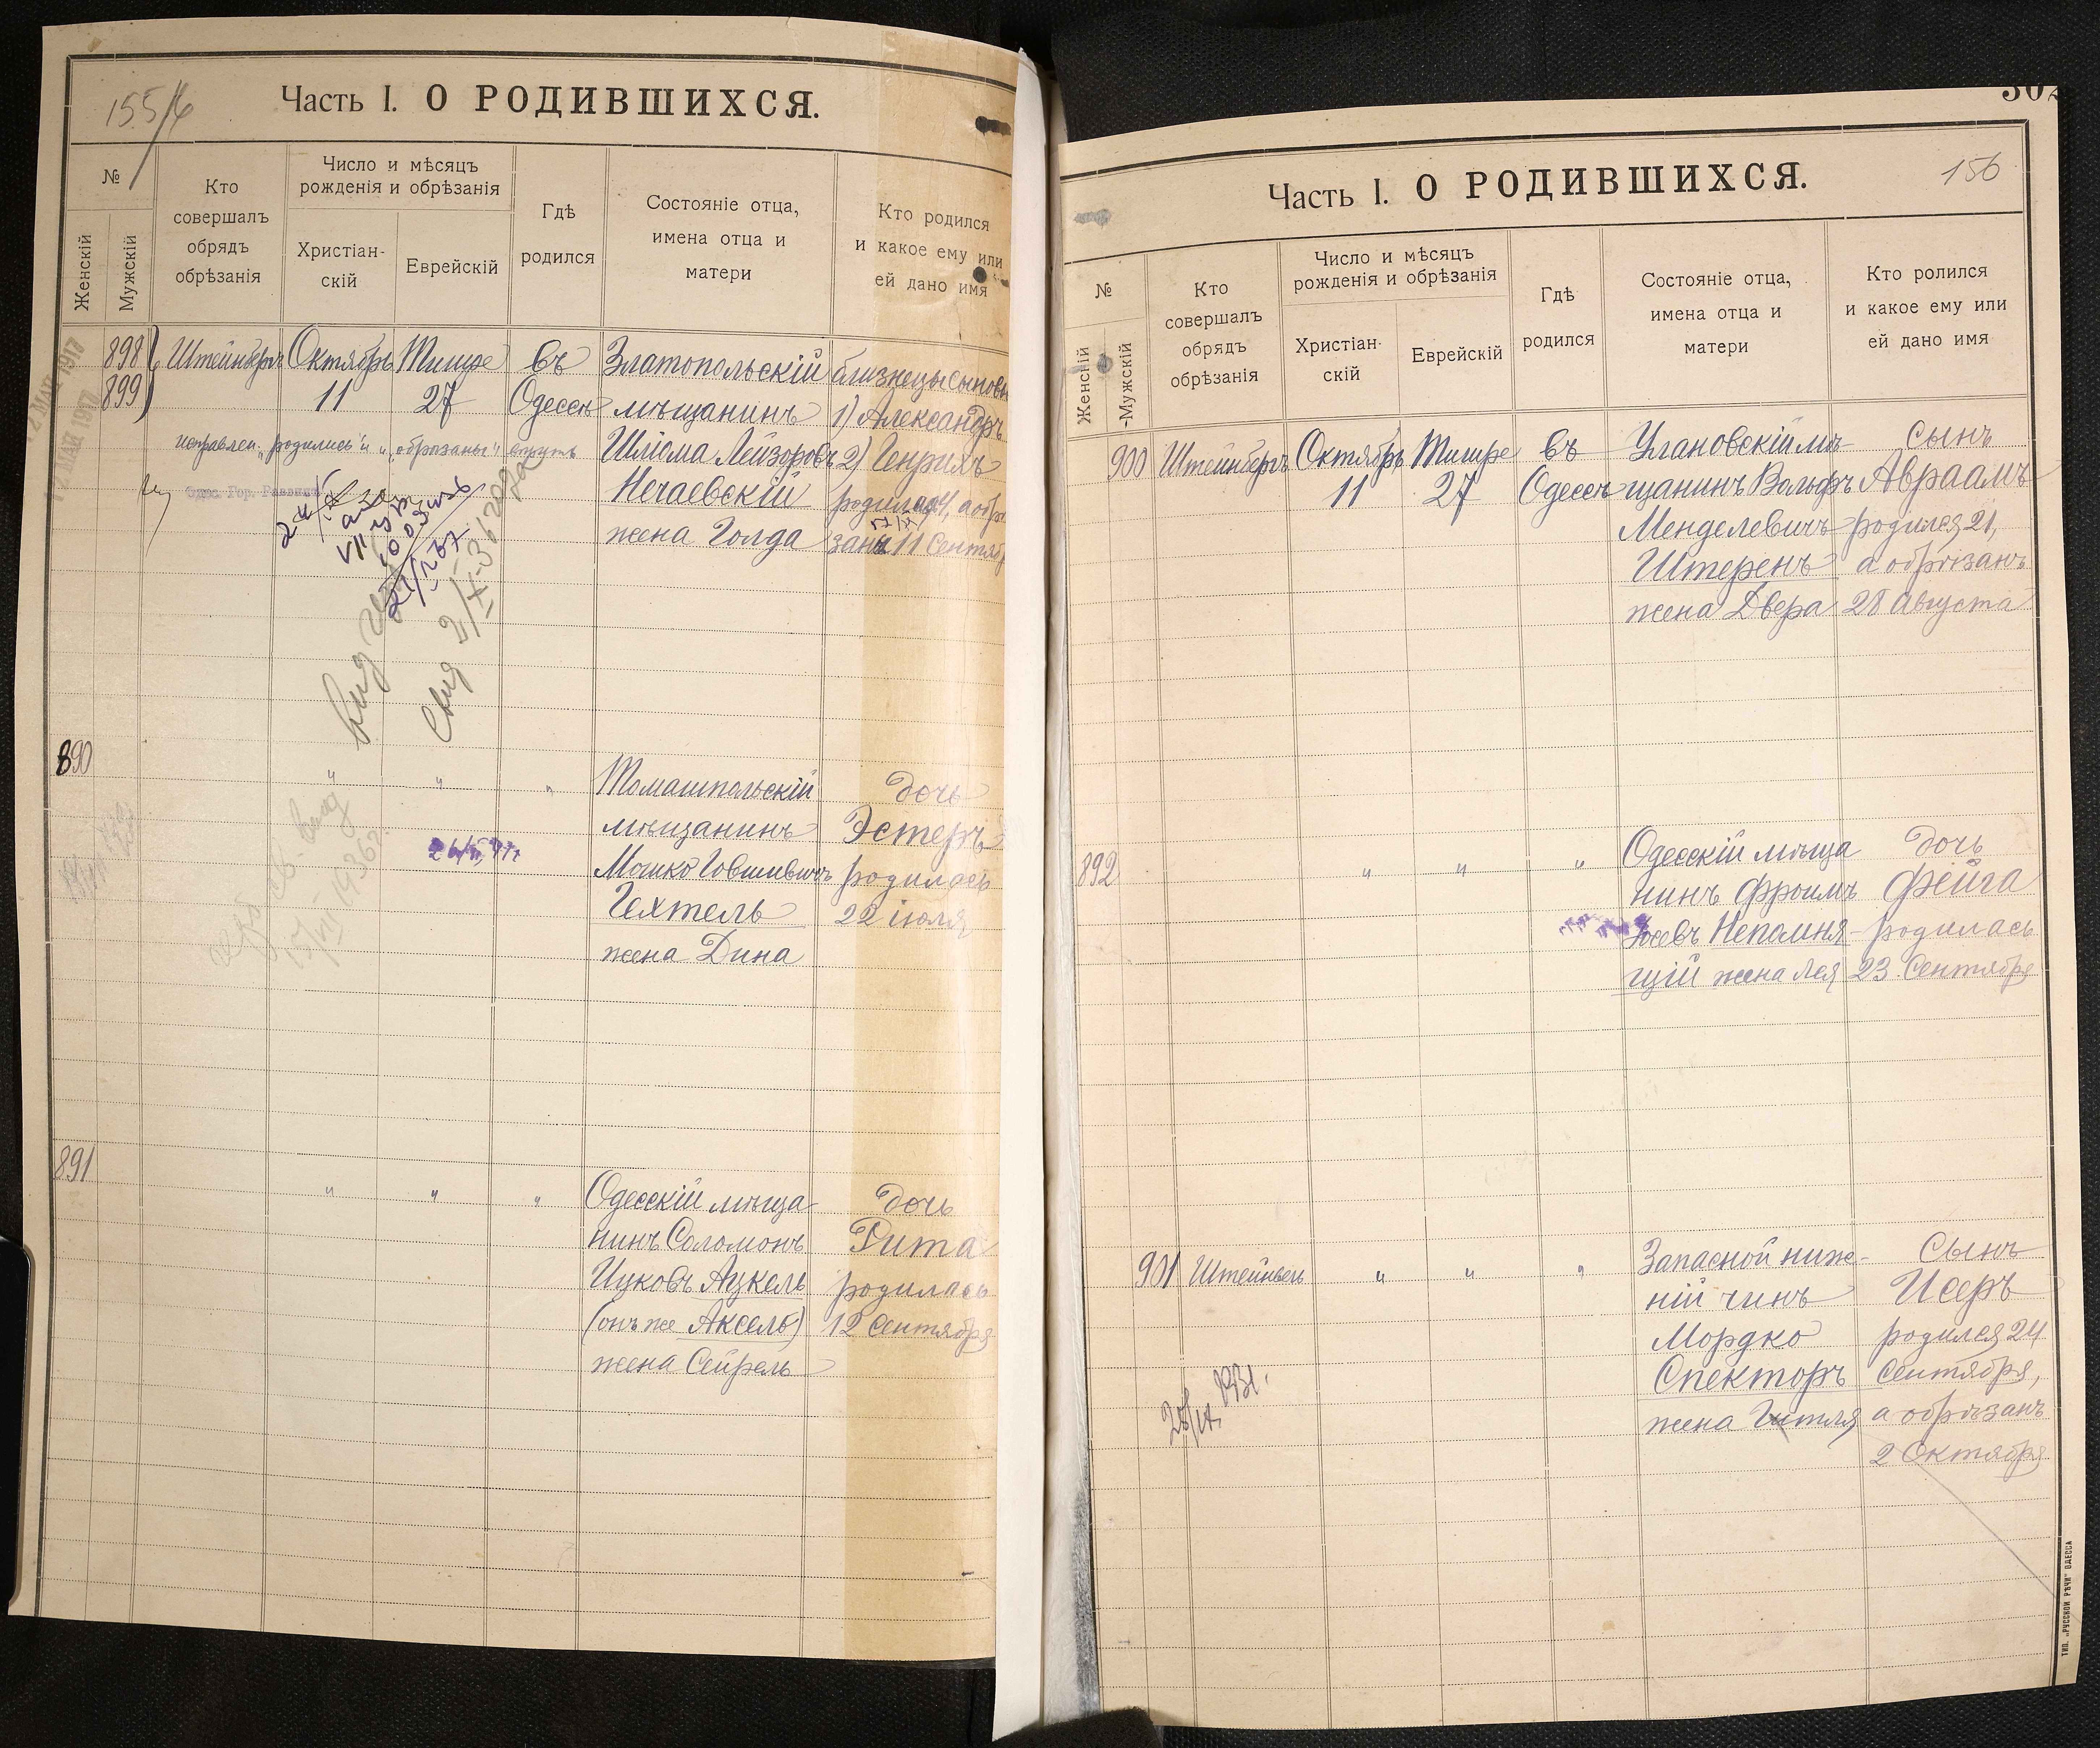 155/6
Часть I. О РОДИВШИХСЯ.
№
Женскій
Мужскій
Кто
совершалъ
обрядъ
обрѣзанія
Число и мѣсяцъ
рожденія и обрѣзанія
Христіан-
скій
Еврейскій
Гдѣ
родился
Состояніе отца,
имена отца и
матери
Кто родился
и какое ему или
ей дано имя
898
899
Штейнбергъ
Октябрь
11
Тишре
27
въ
Одессѣ
Златопольскій
мѣщанинъ
Шліома Лейзоровъ
Нечаевскій
жена Голда
близнецы сыновья
1) Александръ
2) Генрихъ
родились 4, а обрѣ
заны 11 Сентяб
исправлен. „родились“ и „обрѣзаны“ вѣрить
Одес. Гор. Раввинъ
890
„ „ „
Томашпольскій
мѣщанинъ
Мошко Говшивичъ
Гехтель
жена Дина
дочь
Эстеръ
родилась
22 іюля
891
„ „ „
Одесскій мѣща
нинъ Соломонъ
Ицковъ Ацкель
(онъ же Аксель)
жена Сейрель
дочь
Рита
родилась
12 Сентября
302
156
Часть I. О РОДИВШИХСЯ.
№
Женсній
Мужскій
Кто
совершалъ
обрядъ
обрѣзанія
Число и мѣсяцъ
рожденія и обрѣзанія
Христіан-
скій
Еврейскій
Гдѣ
родился
Состояніе отца,
имена отца и
матери
Кто ролился
и какое ему или
ей дано имя
900
Штейнбергъ
Октябрь
11
Тишре
27
въ
Одессѣ
Улановскій мѣ-
щанинъ Вольфъ
Менделевичъ
Штеренъ
жена Двера
сынъ
Авраамъ
родился 21,
а обрѣзанъ
28 Августа
892
„ „ „
Одесскій мѣща
нинъ Фроимъ
Іосевъ Непомня-
щій жена Лея
дочь
Фейга
родилась
23 Сентября
901
Штейнбергъ
„ „ „
Запасной ниж-
ній чинъ
Мордко
Спекторъ
жена Гитля
Сынъ
Исеръ
родился 24
Сентября,
а обрѣзанъ
2 Октября
ТИП. „РУССКОЙ РѢЧИ“ ОДЕССА